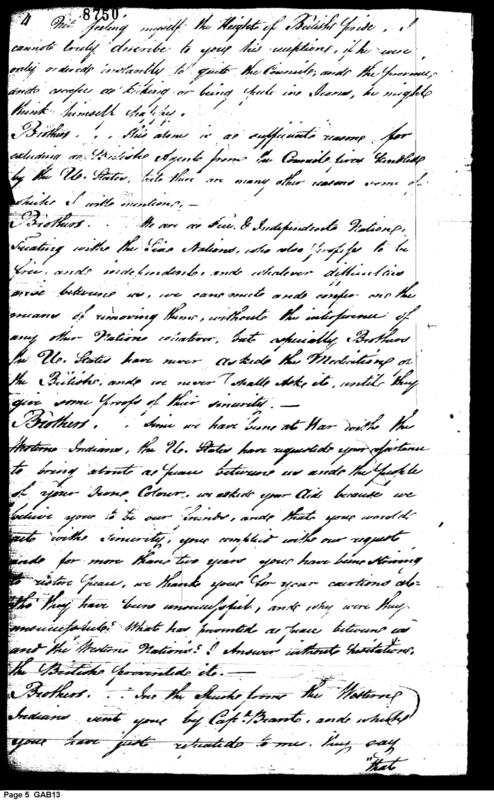 4
8750.
But feeling myself the Height of British pride, I
cannot truly describe to you his emptions, if he were
only ordered instantly to quit the Council, and the Province,
and escape a kicking or being put in Irons, he might
think himself happy.
Brothers... This alone is a sufficient reason for
excluding a British Agent from the Council fires kindled
by the U. States, but there are many other reasons some of
which I will mention, —
Brothers... We are a Free & Independent Nation,
treating with the Five Nations, who also profess to be
free, and independent, and whatever difficulties
arise between us, we can meet and confer on the
means of removing them, without the interference of
any other Nation whatever, but especially Brothers
the U. States have never asked the Mediation of
the British, and we never shall ask it, until they
give some proofs of their sincerity. —
Brothers... Since we have been at War with the
Western Indians, the U. States have requested your assistance
to bring about a peace between us and the people
of your own Colour, we asked your Aid because we
believe you to be our friends, and that you would
act with sincerity, you complied with our request
and for more than two years you have been striving
to restore peace, we thank you for your exertions al-
tho' they have been unsuccessful, and why were they
unsuccessful? What has prevented a peace between us
and the Western Nations? I Answer without hesitation,
the British prevented it. —
Brothers... In the Speech from the Western
Indians sent you by Capt. Brant, and which
you have just repeated to me. They say
"that
Page 5 GAB13